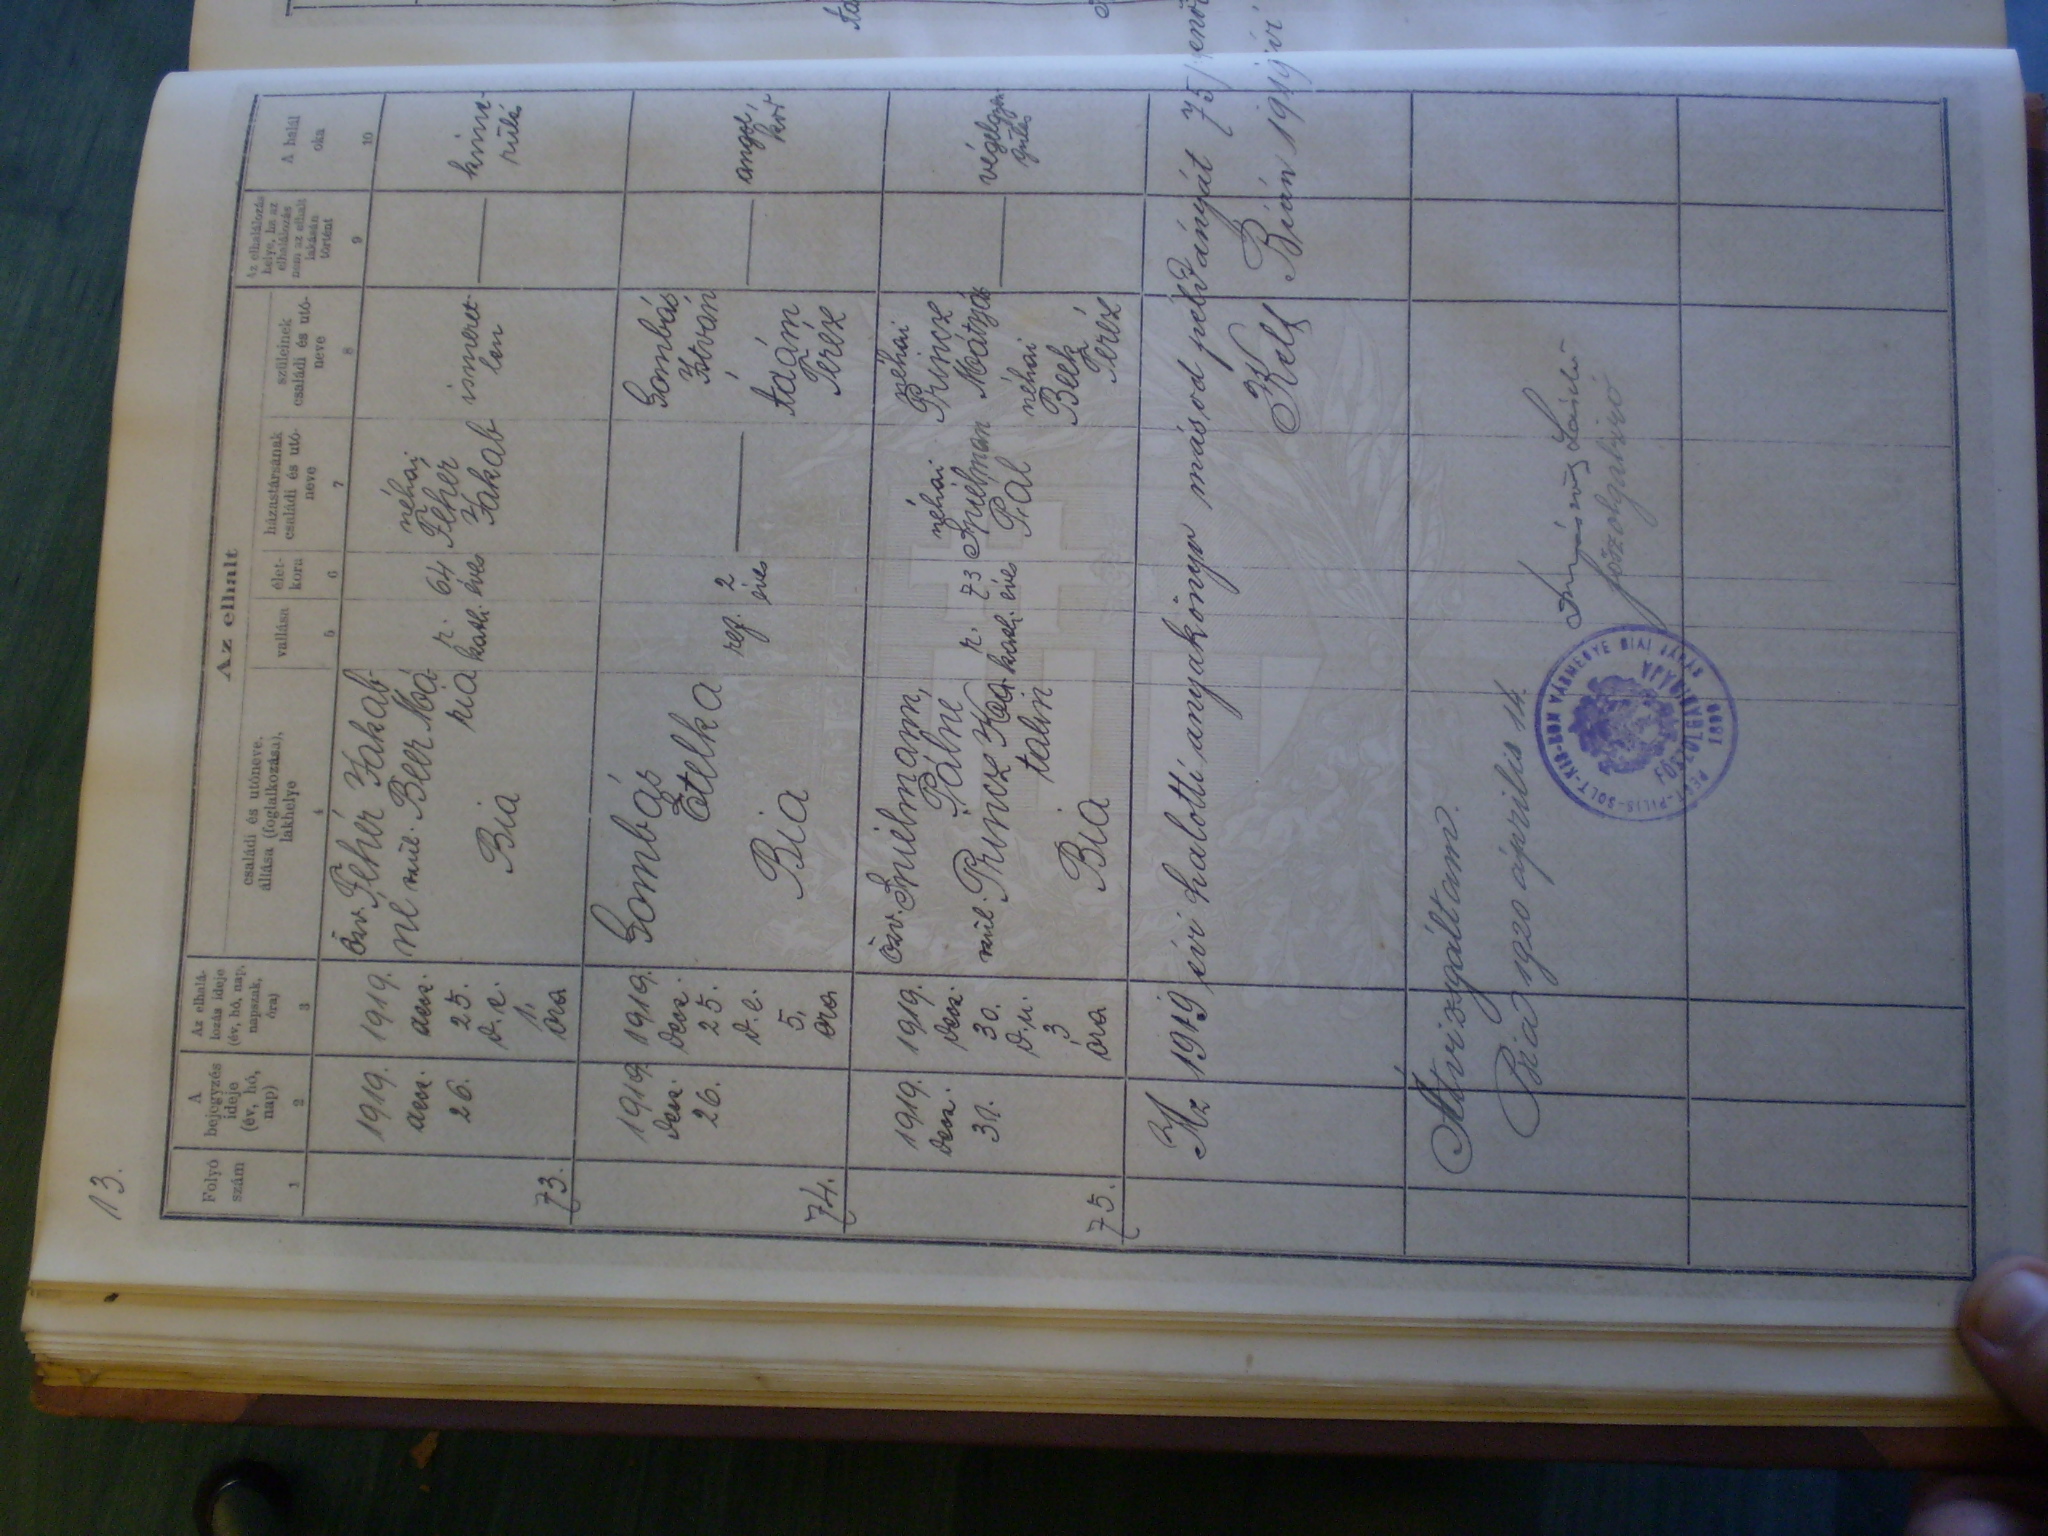 13.
Az elhalt
Folyó
szám
A
bejegyzés
ideje
(év, hó,
nap)
Az elhalá-
lozás ideje
(év, hó, nap,
napszak,
óra)
családi és utóneve,
állása (foglalkozása),
lakhelye
vallása
élet-
kora
házastársának
családi és utó-
neve
szüleinek
családi és utó-
neve
Az elhalálozás
helye, ha az
elhalálozás
nem az elhalt
lakásán
történt
A halál
oka
1
2
3
4
5
6
7
8
9
10
73.
1919.
decz.
26.
1919.
decz.
25.
d. e.
1,
óra
özv. Fehér Jakab-
né szül. Beer Má-
ria
Bia
r.
kath.
64
éves
néhai
Fehér
Jakab
ismeret-
len
74.
1919
decz.
26.
1919.
decz.
25.
d. e.
5,
óra
Gombás
Etelka
Bia
ref.
2
éves
Gombás
István
Teréz
angol
kór
75.
1919.
decz.
1919.
decz.
30.
d. u.
3
óra
özv. Spielmann
Pálné
szül. Princz Ka-
talin
Bia
r.
kath.
73
éves
néhai
Spielman
Pál
néhai
Princz
Mátyás
néhai
Beck
Teréz
végelgyen
gülés
Az 1919 évi halotti anyakönyv másod példányát 75
Kelt Bián 1919 évi
Átvizsgáltam.
Bia 1920 április 14.
főszolgabiró
PEST-PILIS-SOLT-KIS-KUN VÁRMEGYE BIAI JÁRÁS
FŐSZOLGABIRÁJA
1899